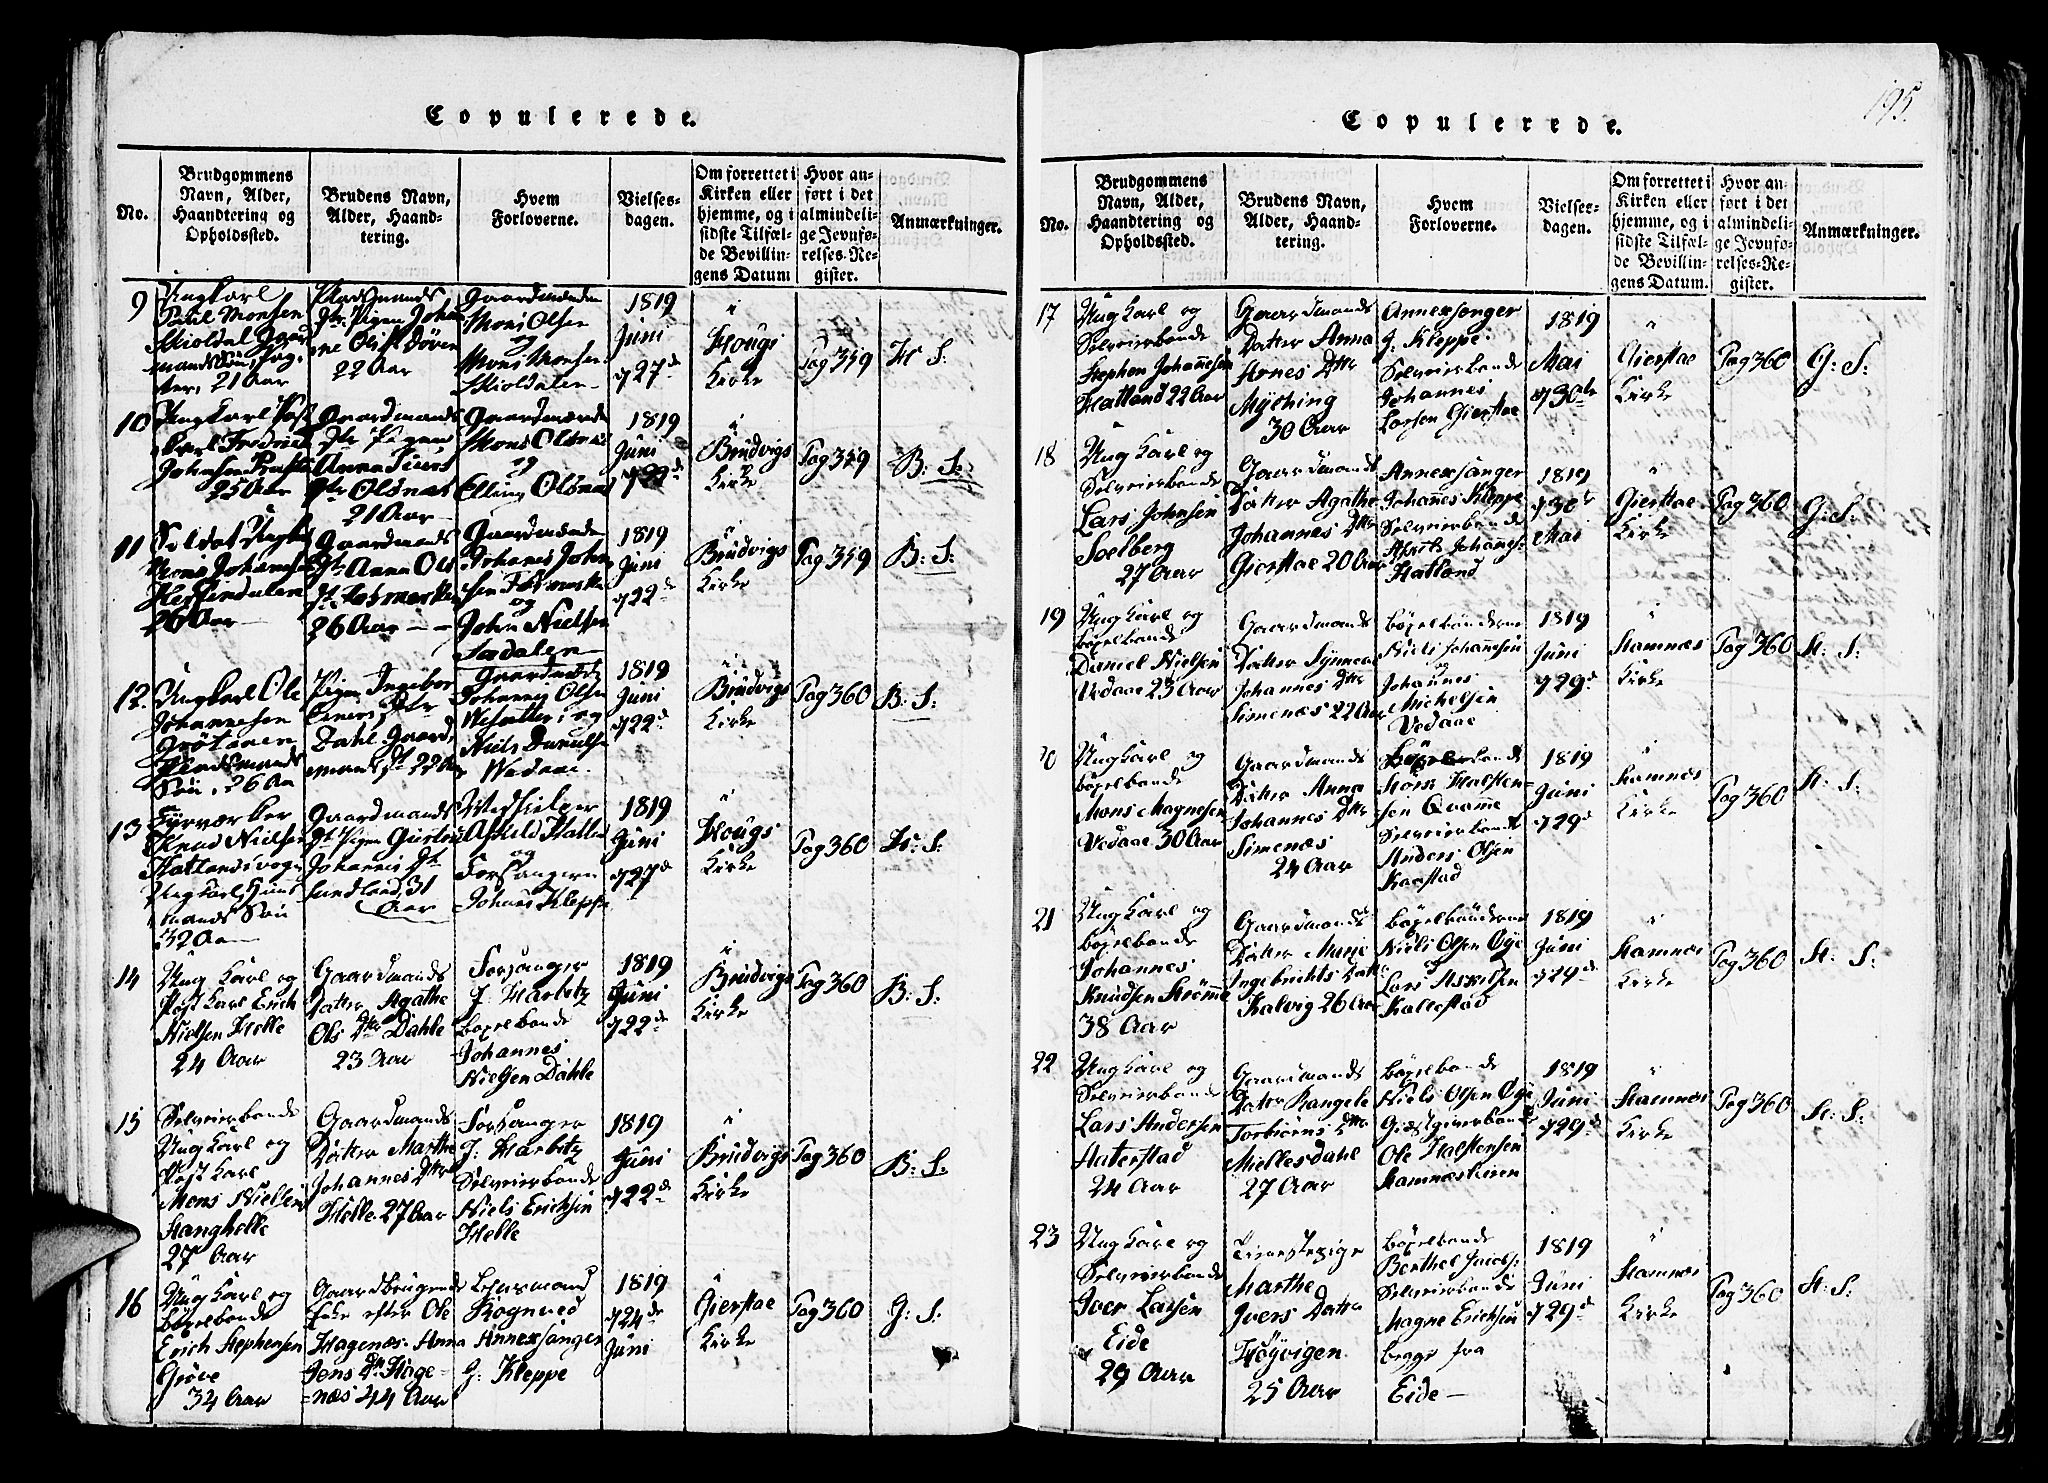 Copulerede.
No.
Brudgommens
Navn, Alder,
Haandtering og
Opholdssted.
Brudens Navn,
Alder, Haand-
tering.
Hvem
Forloverne.
Vielses-
dagen.
Om forrettet i
Kirken eller
hjemme, og i
sidste Tilfæl-
de Bevillin-
gens Datum
Hvor an-
ført i det
almindeli-
ge Jevnfø-
relses-Re-
gister.
Anmærkninger.
9
Ungkarl
Poul Monsen
21 Aar
22 Aar
Gaardmændene
Mons Olsen
og
Mons Monsen
Skioldalen
1819
Juni
d 27de
i
Hougs
Kirke
Pag 359
H: S:
10
Johnsen
25 Aar
Gaardmands
Dtr Pigen
Anna
Dtr Olsnæs
21 Aar
Gaardmænd
Mons Olsnæs
og
Elling Olsnæs
1819
Juni
d 22de
i
Brudvigs
Kirke
Pag 359
B: S:
11
Soldat Ungk
Mons Johannesen
26 Aar
Gaardmands
Dtr Anna Ols
26 Aar
Gaardmændene
Johanes Johan
sen
og
John Nielsen
Sædalen
1819
Juni
d 22de
i
Brudvigs
Kirke
Pag 359
B: S:
12.
Ungkarl Ole
Johannesen
Pladsmands
Søn, 26 Aa
Pigen Ingebor
Dahl Gaard
mands Dt 22 Aar
Johannes Olsen
og
Niels Danielse
Wedaae.
1819
Juni
d 22de
i
Brudvigs
Kirke
Pag 360
B: S:
13
Fyrværker
Knud Nielsen
Ungkarl
mands Søn
32 Aa
Gaardmands
Johannis Dt
31
Aar
og
Forsangeren
Johanes Kleppe
1819
Juni
d 27de
i
Hougs
Kirke
Pag 360
H: S:
14
Ung Karl og
Post Karl Erich
Nielsen Helle
24 Aar
Gaardmands
Datter Agathe
Ols Dttr Dahle
23 Aar
Forsanger
J. Harbitz
bøxelbonde
Johannes
Nielsen Dahle
1819
Juni
d 22de
i
Brudvigs
Kirke
Pag 360
B: S:
15
Selveierbonde
Ung Karl og
Post Karl
Mons Nielsen
Stanghelle
27 Aar
Gaardmands
Datter Marthe
Johannes Dttr
Helle 27 Aar
Forsanger
J: Harbitz
Selveierbonde
Niels Erichsen
Helle
1819
Juni
d 22de
i
Brudvigs
Kirke
Pag 360
B: S:
16
Ung Karl og
bøxelbonde
Erich Stephensen
Grøve
34 Aar
Gaardbrugende
Enke efter Ole
Hagenæs. Anna
Jens Dtr Hage-
-næs 44 Aar
Lehnsmand
Rognved
Annexsanger
J: Kleppe
1819
d 24de
Juni
i
Gierstae
Kirke
Pag 360
G: S:
195.
Copulerede.
No.
Brudgommens
Navn, Alder,
Haandtering og
Opholdssted.
Brudens Navn,
Alder, Haand-
tering.
Hvem
Forloverne.
Vielses-
dagen.
Om forrettet i
Kirken eller
hjemme, og i
sidste Tilfæl-
de Bevillin-
gens Datum.
Hvor an-
ført i det
almindeli-
ge Jevnfø-
relses-Re-
gister.
Anmærkninger.
17
Ung Karl og
Selveierbonde
Stephen Johannesen
Hatland 22 Aar
Gaardmands
Datter Anna
Arnes Dttr
Mysching
30 Aar
Annexsanger
J. Kleppe.
Selveierbonde
Johannes
Larsen Gierstae
1819
Mai
d 30te
i
Gierstae
Kirke
Pag 360
G: S:
18
Ung Karl og
Selveierbonde
Lars Johnsen
Soelberg
27 Aar
Gaardmands
Datter Agathe
Johannes Dttr
Gierstae 20 Aar
Annexsanger
Johannes Kleppe
Selveierbonde
Johannes:
Hatland
1819
d 30te
Mai
i
Gierstae
Kirke
Pag 360
G: S:
19
Ung Karl og
bøxelbonde
Daniel Nielsen
Vedaae 23 Aar
Gaardmands
Datter Synneva
Johannes Dttr
Simenæs 22 Aar
bøxelbønderne
Niels Johannesen
og
Johannes
Michelsen
Vedaae
1819
Juni
d 29de
i
Stamnæs
Kirke
Pag 360
St: S:
20
Ung Karl og
bøxelbonde
Mons Magnesen
Vedaae 30 Aar
Gaardmands
Datter Anna
Johannes Dttr
Simenæs
24 Aar
Halsten-
sen Qvamme
Selveierbonde
Anders Olsen
Kaarstad
1819
Juni
d 29de
i
Stamnæs
Kirke
Pag 360
St: S:
21
Ung Karl og
bøxelbonde
Johannes
Knudsen Strømme
38 Aar
Gaardmands
Datter Marie
Ingebrichts Datter
Kalvig 26 Aar
bøxelbønderne
Niels Olsen Øye
og
Lars Askilsen
Kallestad
1819
Juni
d 29de
i
Stamnæs
Kirke
Pag 360
St: S:
22
Ung Karl og
Selveierbonde
Lars Andersen
Haterstad
24 Aar
Gaardmands
Datter Rangele
Torbiørns Dttr
Miellesdahl
27 Aar
bøxelbonde
Niels Olsen Øye
Giæstgiverbonde
Ole Halstensen
Stamnæs
1819
Juni
d 29de
i
Stamnæs
Kirke
Pag 360
St: S:
23
Ung Karl og
Selveierbonde
Iver Larsen
Eide
29 Aar
Tienestepige
Marthe
Ivers Datter
Høyvigen
25 Aar
bøxelbonde
Berthel Jacobs:
Selveierbonde
Magne Erichsen
begge fra
Eide
1819
Juni
d 29de
i
Stamnæs
Kirke
Pag 360
St: S: